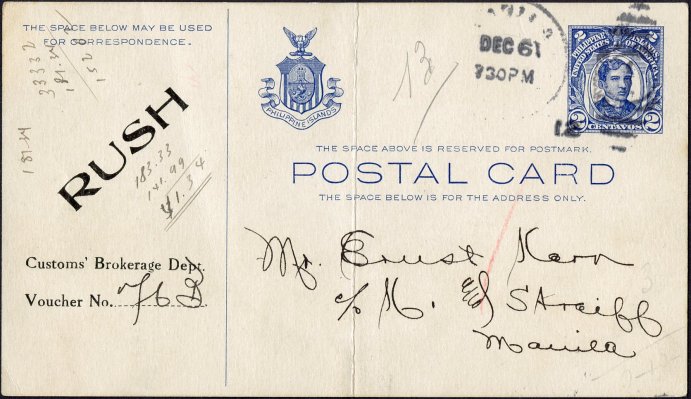 THE SPACE BELOW MAY BE USED
FOR CORRESPONDENCE.
33332
RUSH
183.33
141.99
41.34
Customs' Brokerage Dept.
Voucher No. 76D
PHILIPPINE ISLANDS
13
DEC 6
730PM
2 PHILIPPINE ISLANDS 2
UNITED STATES OF AMERICA
2 CENTAVOS 2
THE SPACE ABOVE IS RESERVED FOR POSTMARK.
POSTAL CARD
THE SPACE BELOW IS FOR THE ADDRESS ONLY.
Mr. Ernst Kern
c/o H. Streiff
Manila